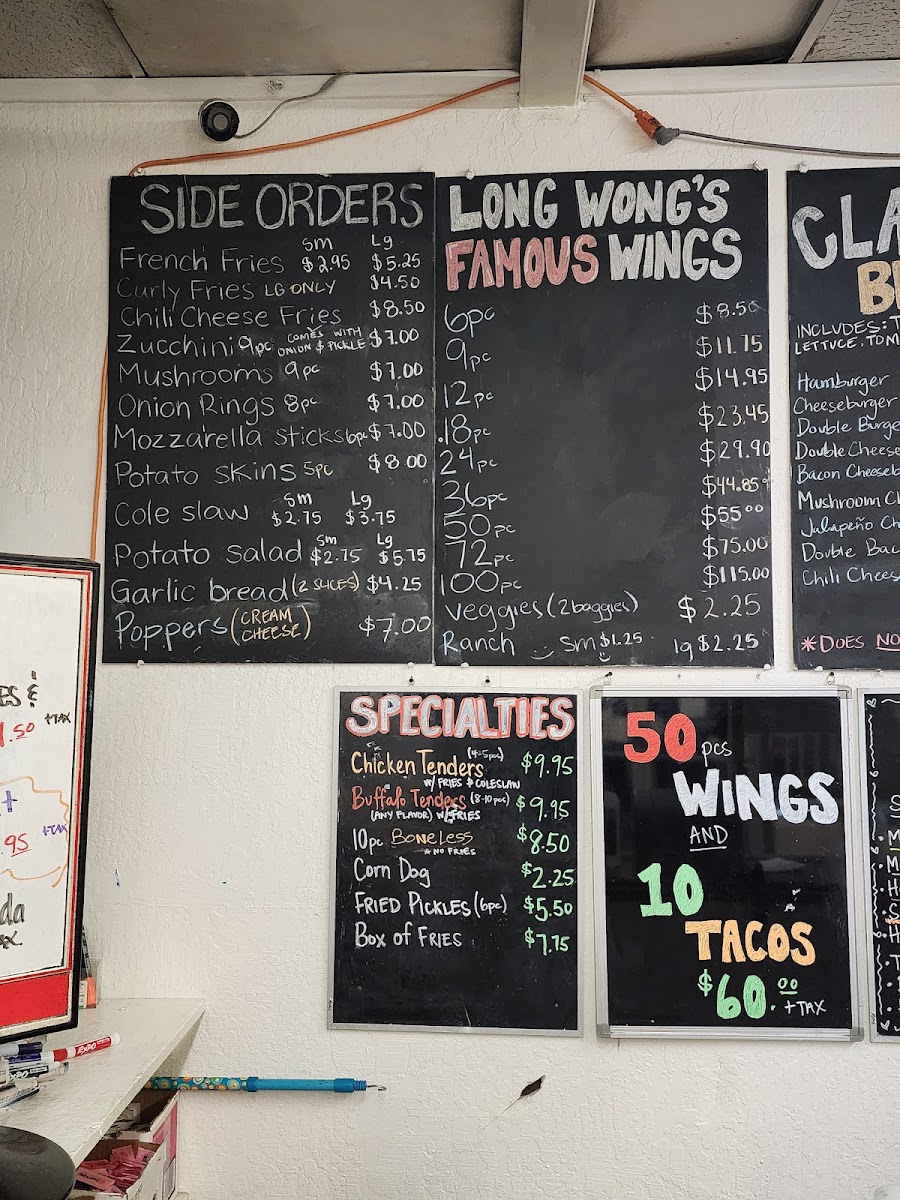 SIDE ORDERS
Sm Lg
French Fries $2.95 $5.25
Curly Fries LG ONLY $4.50
Chili Cheese Fries $8.50
Zucchini 9pc COMES WITH ONION & PICKLE $7.00
Mushrooms 9pc $7.00
Onion Rings 8pc $7.00
Mozzarella Sticks 6pc $7.00
Potato Skins 5pc $8.00
Sm Lg
Cole slaw $2.75 $3.75
Sm Lg
Potato Salad $2.75 $5.75
Garlic bread (2 SLICES) $4.25
Poppers (CREAM CHEESE) $7.00
LONG WONG'S
FAMOUS WINGS
6pc $8.50
9pc $11.75
12pc $14.95
18pc $23.45
24pc $29.90
36pc $44.85
50pc $55.00
72pc $75.00
100pc $115.00
Veggies (2 baggies) $2.25
Ranch Sm $1.25 lg $2.25
CLA
B
INCLUDES: T
LETTUCE, TOM
Hamburger
Cheeseburger
Double Burge
Double Cheese
Bacon Cheeseb
Mushroom Ch
Jalapeño Ch
Double Bac
Chili Chees
*DOES NO
ES &
.50 +TAX
+
.95 +TAX
da
ax
SPECIALTIES
Chicken Tenders (4-5pc) $9.95
W/ FRIES & COLESLAW
Buffalo Tenders (8-10pc) $9.95
(ANY FLAVOR) W/FRIES
10pc BONELESS $8.50
* NO FRIES
Corn Dog $2.25
FRIED PICKLES (6pc) $5.50
BOX OF FRIES $7.75
50 pcs
WINGS
AND
10
TACOS
$60.00 +TAX
EXPO